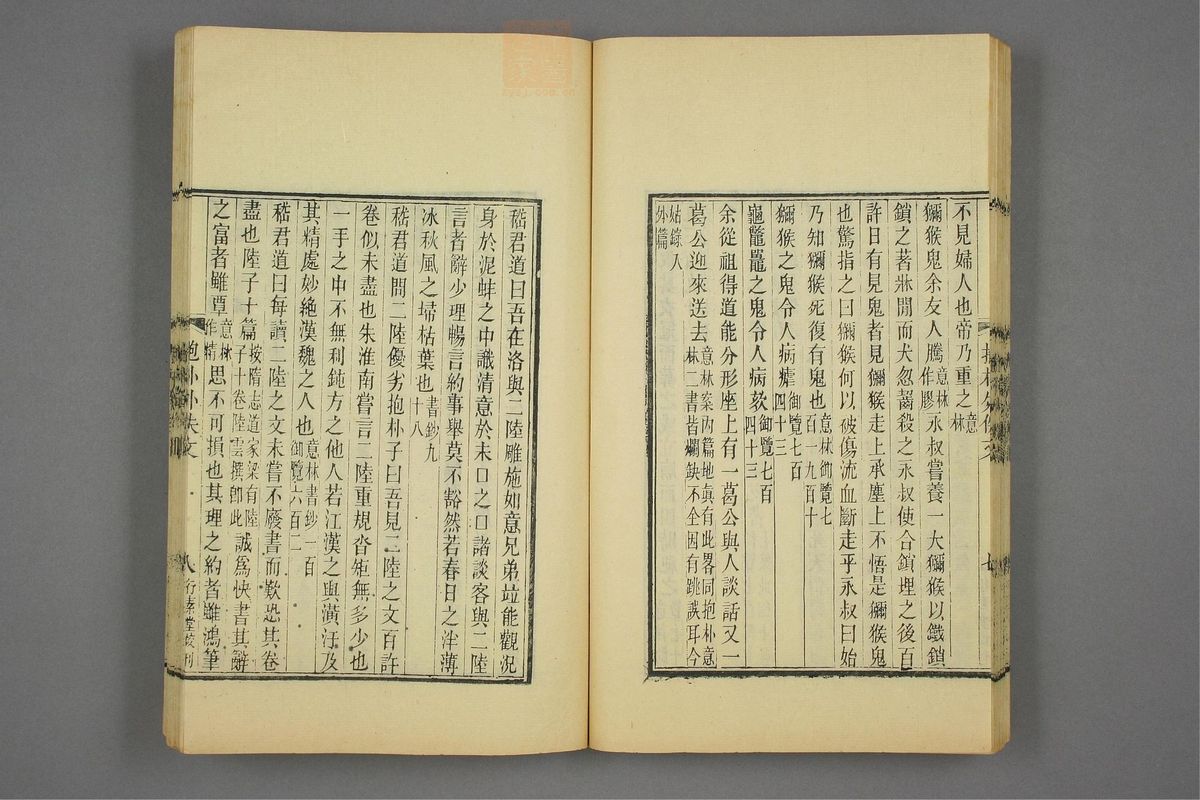 不見婦人也帝乃重之意林
獮猴鬼余友人騰意林作膠永叔嘗養一大獮猴以鐵鎖
鎖之著牀間而犬忽齧殺之永叔使合鎖埋之後百
許日有見鬼者見獮猴走上承塵上不悟是獮猴鬼
也驚指之曰獮猴何以破傷流血斷走乎永叔曰始
乃知獮猴死復有鬼也意林御覽七百一九百十
獮猴之鬼令人病瘧御覽七百四十三
龜鼈鼉之鬼令人病欬御覽七百四十三
余從祖得道能分形座上有一葛公與人談話又一
葛公迎來送去意林案內篇地眞有此畧同抱朴意林二書皆爛缺不全因有跳誤耳今
姑錄入外篇
嵇君道曰吾在洛與二陸雕施如意兄弟竝能觀況
身於泥蚌之中識清意於未口之口諸談客與二陸
言者辭少理暢言約事舉莫不豁然若春日之泮薄
冰秋風之埽枯葉也書鈔九十八
嵇君道問二陸優劣抱朴子曰吾見二陸之文百許
卷似未盡也朱淮南嘗言二陸重規沓矩無多少也
一手之中不無利鈍方之他人若江漢之與潢汙及
其精處妙絶漢魏之人也意林書鈔一百御覽六百二
嵇君道曰每讀二陸之文未嘗不廢書而歎恐其卷
盡也陸子十篇按隋志道家梁有陸子十卷陸雲撰卽此誠爲快書其辭
之富者雖覃意林作精思不可損也其理之約者雖鴻筆
抱朴外佚文
八
行素堂校刊
七